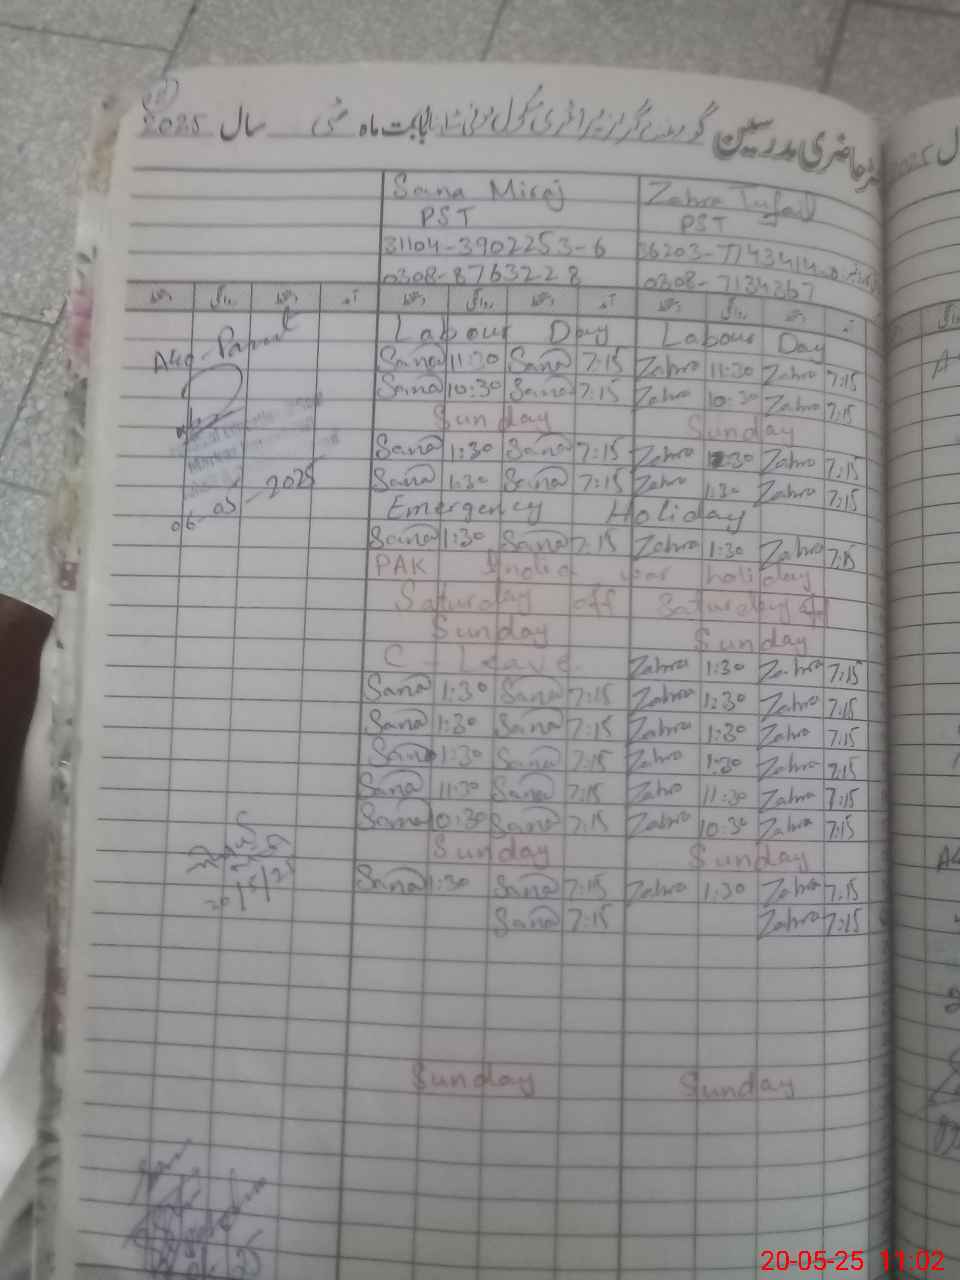 2025 سال مئی بابت ماہ گورنمنٹ گرلز پرائمری سکول حاضری مدرسین
Sana Miraj Zahra Tufail
PST PST
31104-3902253-6 36203-7743414-0
0308-8763228 0308-7134367
دستخط روانگی دستخط آمد دستخط روانگی دستخط آمد دستخط روانگی دستخط آمد
Labour Day Labour Day
Sana 11:30 Sana 7:15 Zahra 11:30 Zahra 7:15
Sana 10:30 Sana 7:15 Zahra 10:30 Zahra 7:15
Sunday Sunday
Sana 1:30 Sana 7:15 Zahra 1:30 Zahra 7:15
Sana 1:30 Sana 7:15 Zahra 1:30 Zahra 7:15
06-05-2025 Emergency Holiday
Sana 1:30 Sana 7:15 Zahra 1:30 Zahra 7:15
PAK India war holiday
Saturday off Saturday off
Sunday Sunday
C-Leave Zahra 1:30 Zahra 7:15
Sana 1:30 Sana 7:15 Zahra 1:30 Zahra 7:15
Sana 1:30 Sana 7:15 Zahra 1:30 Zahra 7:15
Sana 1:30 Sana 7:15 Zahra 1:30 Zahra 7:15
Sana 11:30 Sana 7:15 Zahra 11:30 Zahra 7:15
Sana 10:30 Sana 7:15 Zahra 10:30 Zahra 7:15
Sunday Sunday
20/5/25 Sana 1:30 Sana 7:15 Zahra 1:30 Zahra 7:15
Sana 7:15 Zahra 7:15
Sunday Sunday
20-05-25 11:02